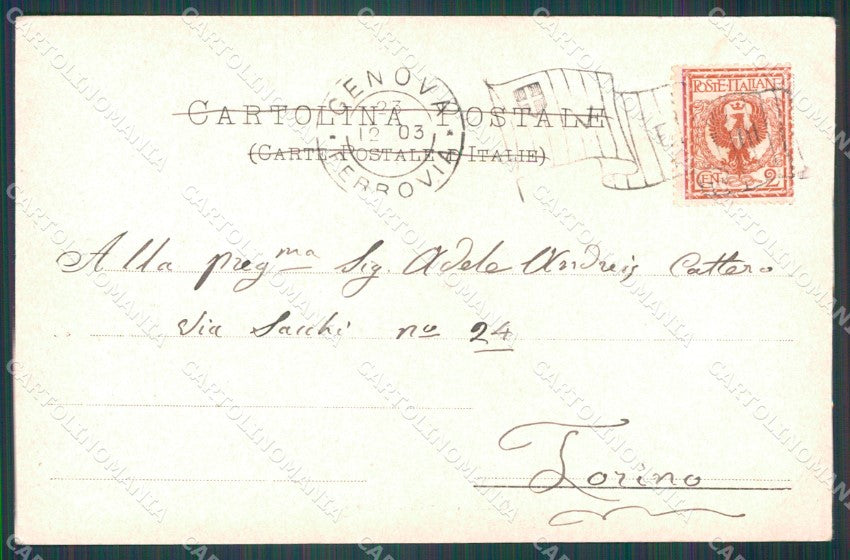 CARTOLINA POSTALE
(CARTE POSTALE D'ITALIE)
GENOVA
23
12 03
FERROVIA
POSTE·ITALIANE
CEN. 2
Alla preg.ma Sig. Adele Andreis Cattero
Via Sacchi no 24
Torino
CARTOLINOMANIA